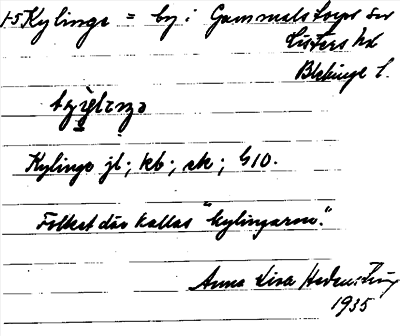 1-5 Kylinge = by i Gammalstorps sn
Listers hd
Blekinge l.
Kylinge jl; kb; ak; G10.
Folket där kallas "kylingarna".
Anna Lisa
1935